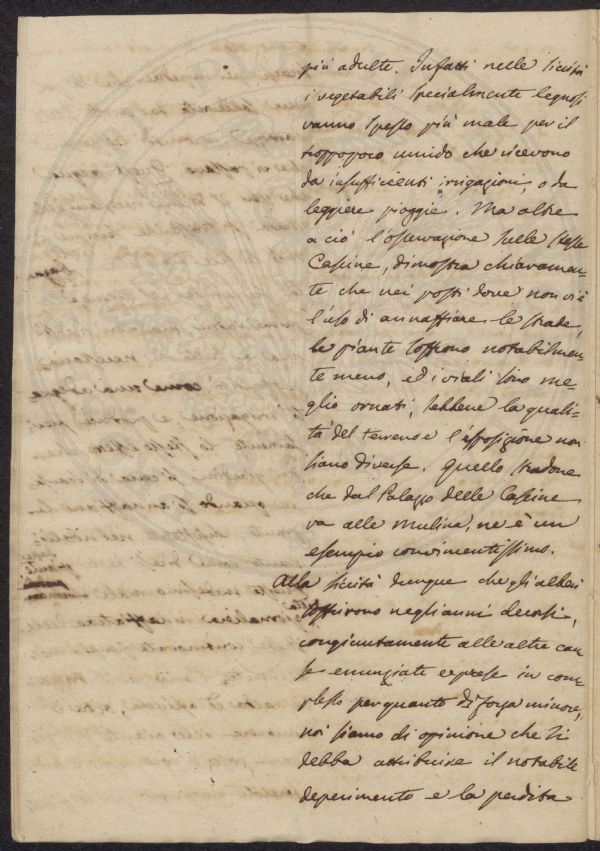 più adulte. Infatti nelle siccità
i vegetabili specialmente legnosi
vanno spesso più male per il
troppopoco umido che ricevono
da insufficienti irrigazioni, o da
leggiere pioggie. Ma oltre
a ciò l'osservazione sulle stesse
Cascine, dimostra chiaramen=
te che nei posti dove non vi è
l'uso di annaffiare le strade,
le piante soffrono notabilmen=
te meno, ed i viali sono me
glio ornati, sebbene la quali=
tà del terreno e l'esposizione non
siano diverse. Quello stradone
che dal Palazzo delle Cascine
va alle mulina, ne è un
esempio convincentissimo.
Alla siccità dunque che gli alberi
soffrirono negli anni decorsi,
congiuntamente alle altre cau=
se enunziate espresse in com=
plesso per quanto di forza minore,
noi siamo di opinione che si
debba attribuire il notabile
deperimento e la perdita